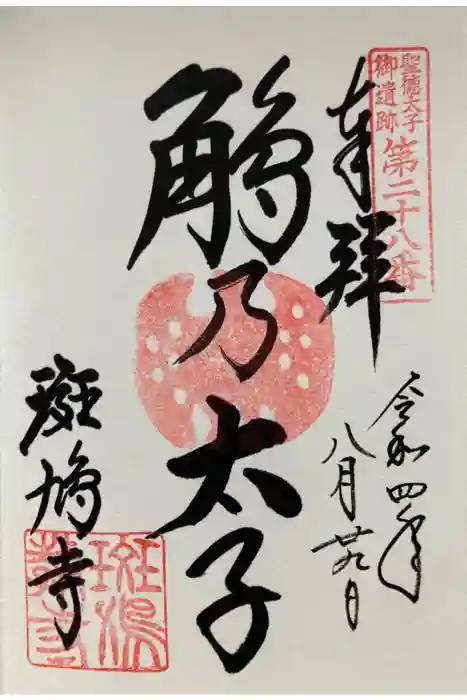 聖徳太子
御遺跡
第二十八番
奉拝
令和四年
八月廿九日
鵤乃太子
斑鳩寺
斑鳩